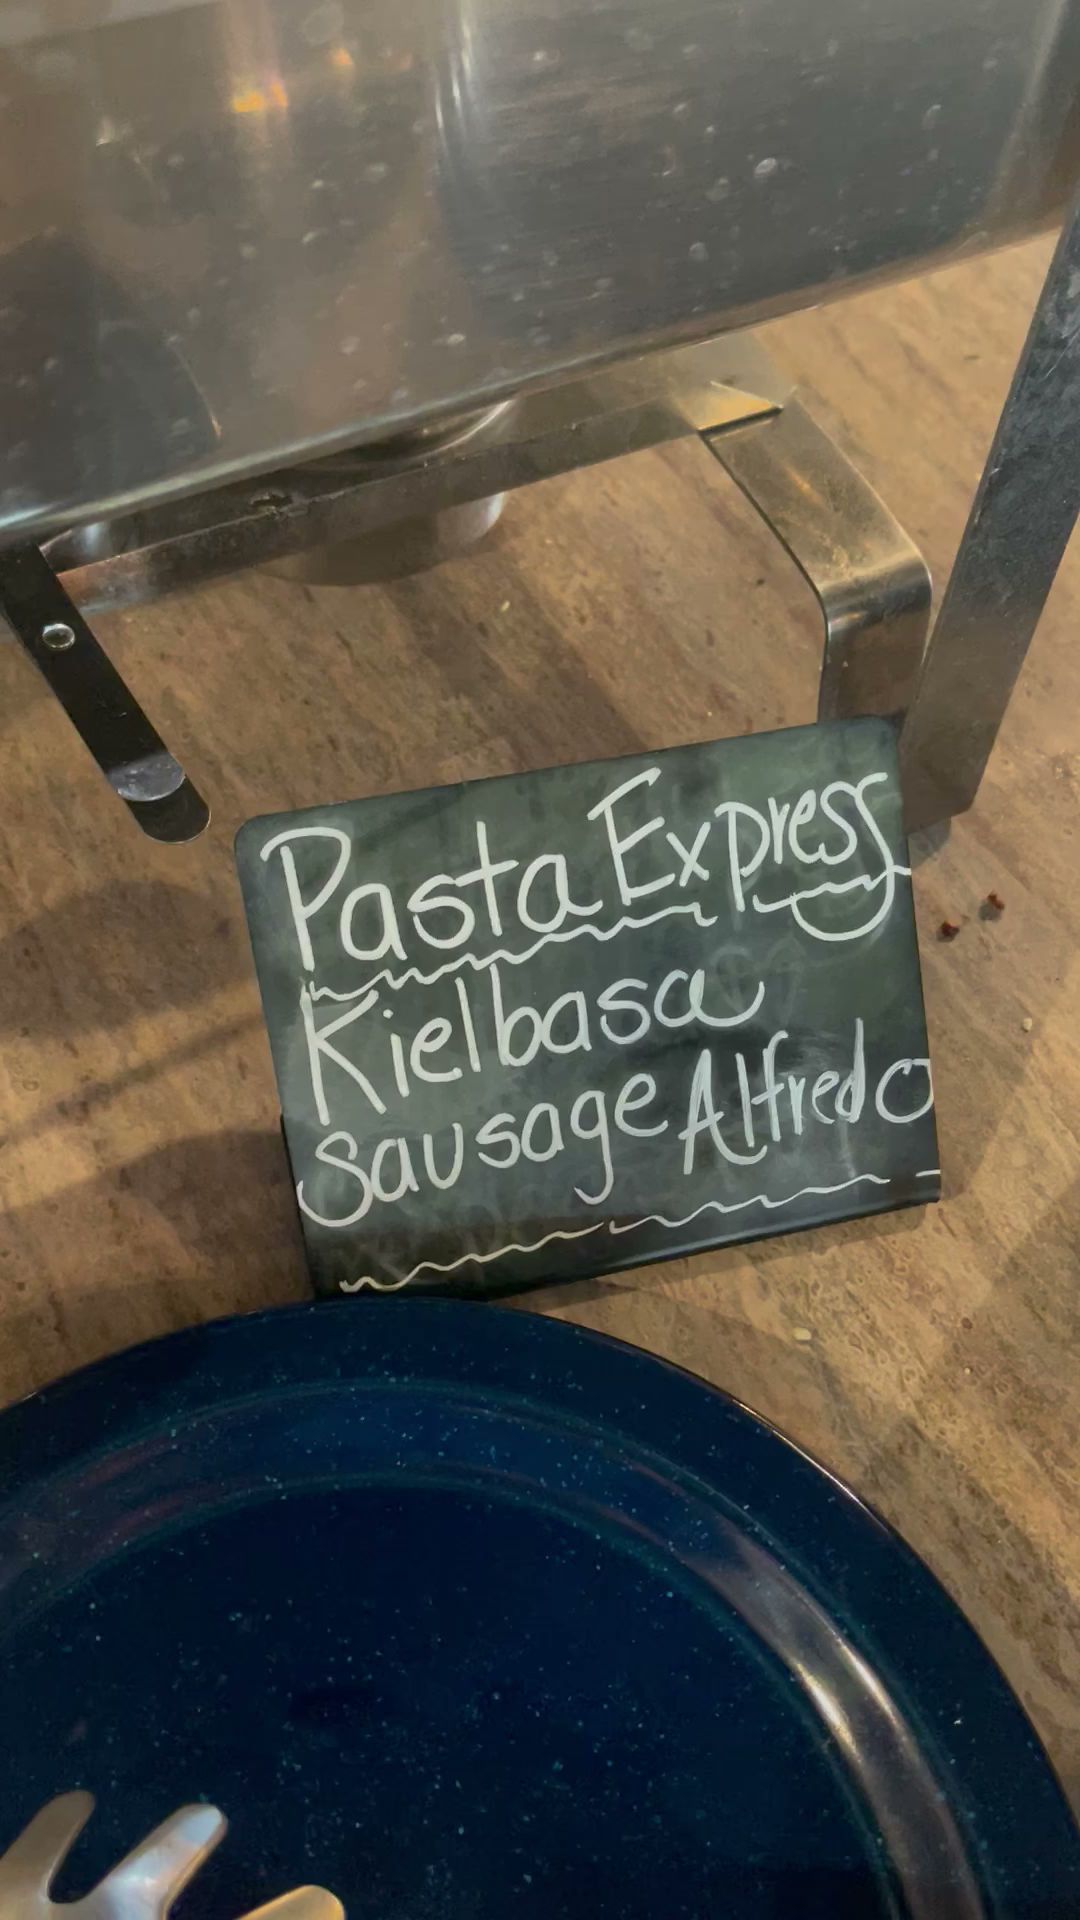 Pasta Express
Kielbasa
Sausage Alfredo